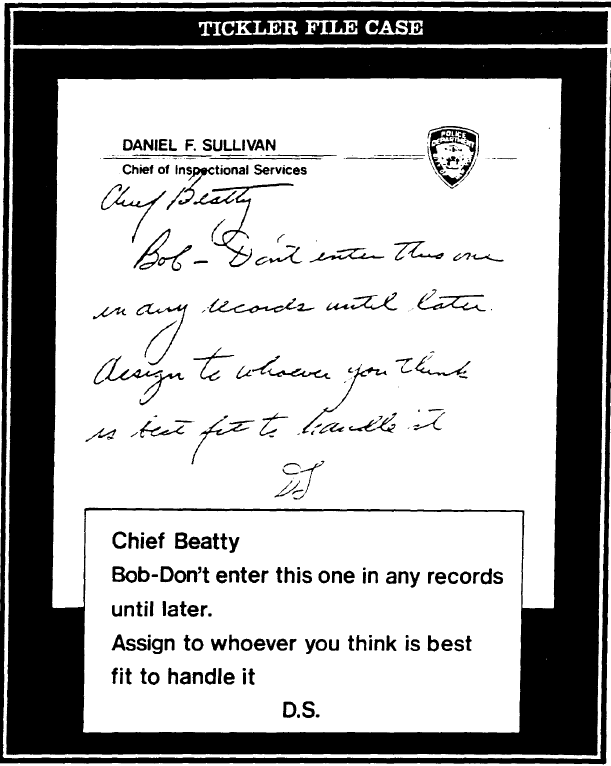 TICKLER FILE CASE
DANIEL F. SULLIVAN
Chief of Inspectional Services
POLICE
DEPARTMENT
Chief Beatty
Bob - Don't enter this one
in any records until later.
Assign to whoever you think
is best fit to handle it
DS
Chief Beatty
Bob-Don't enter this one in any records
until later.
Assign to whoever you think is best
fit to handle it
D.S.